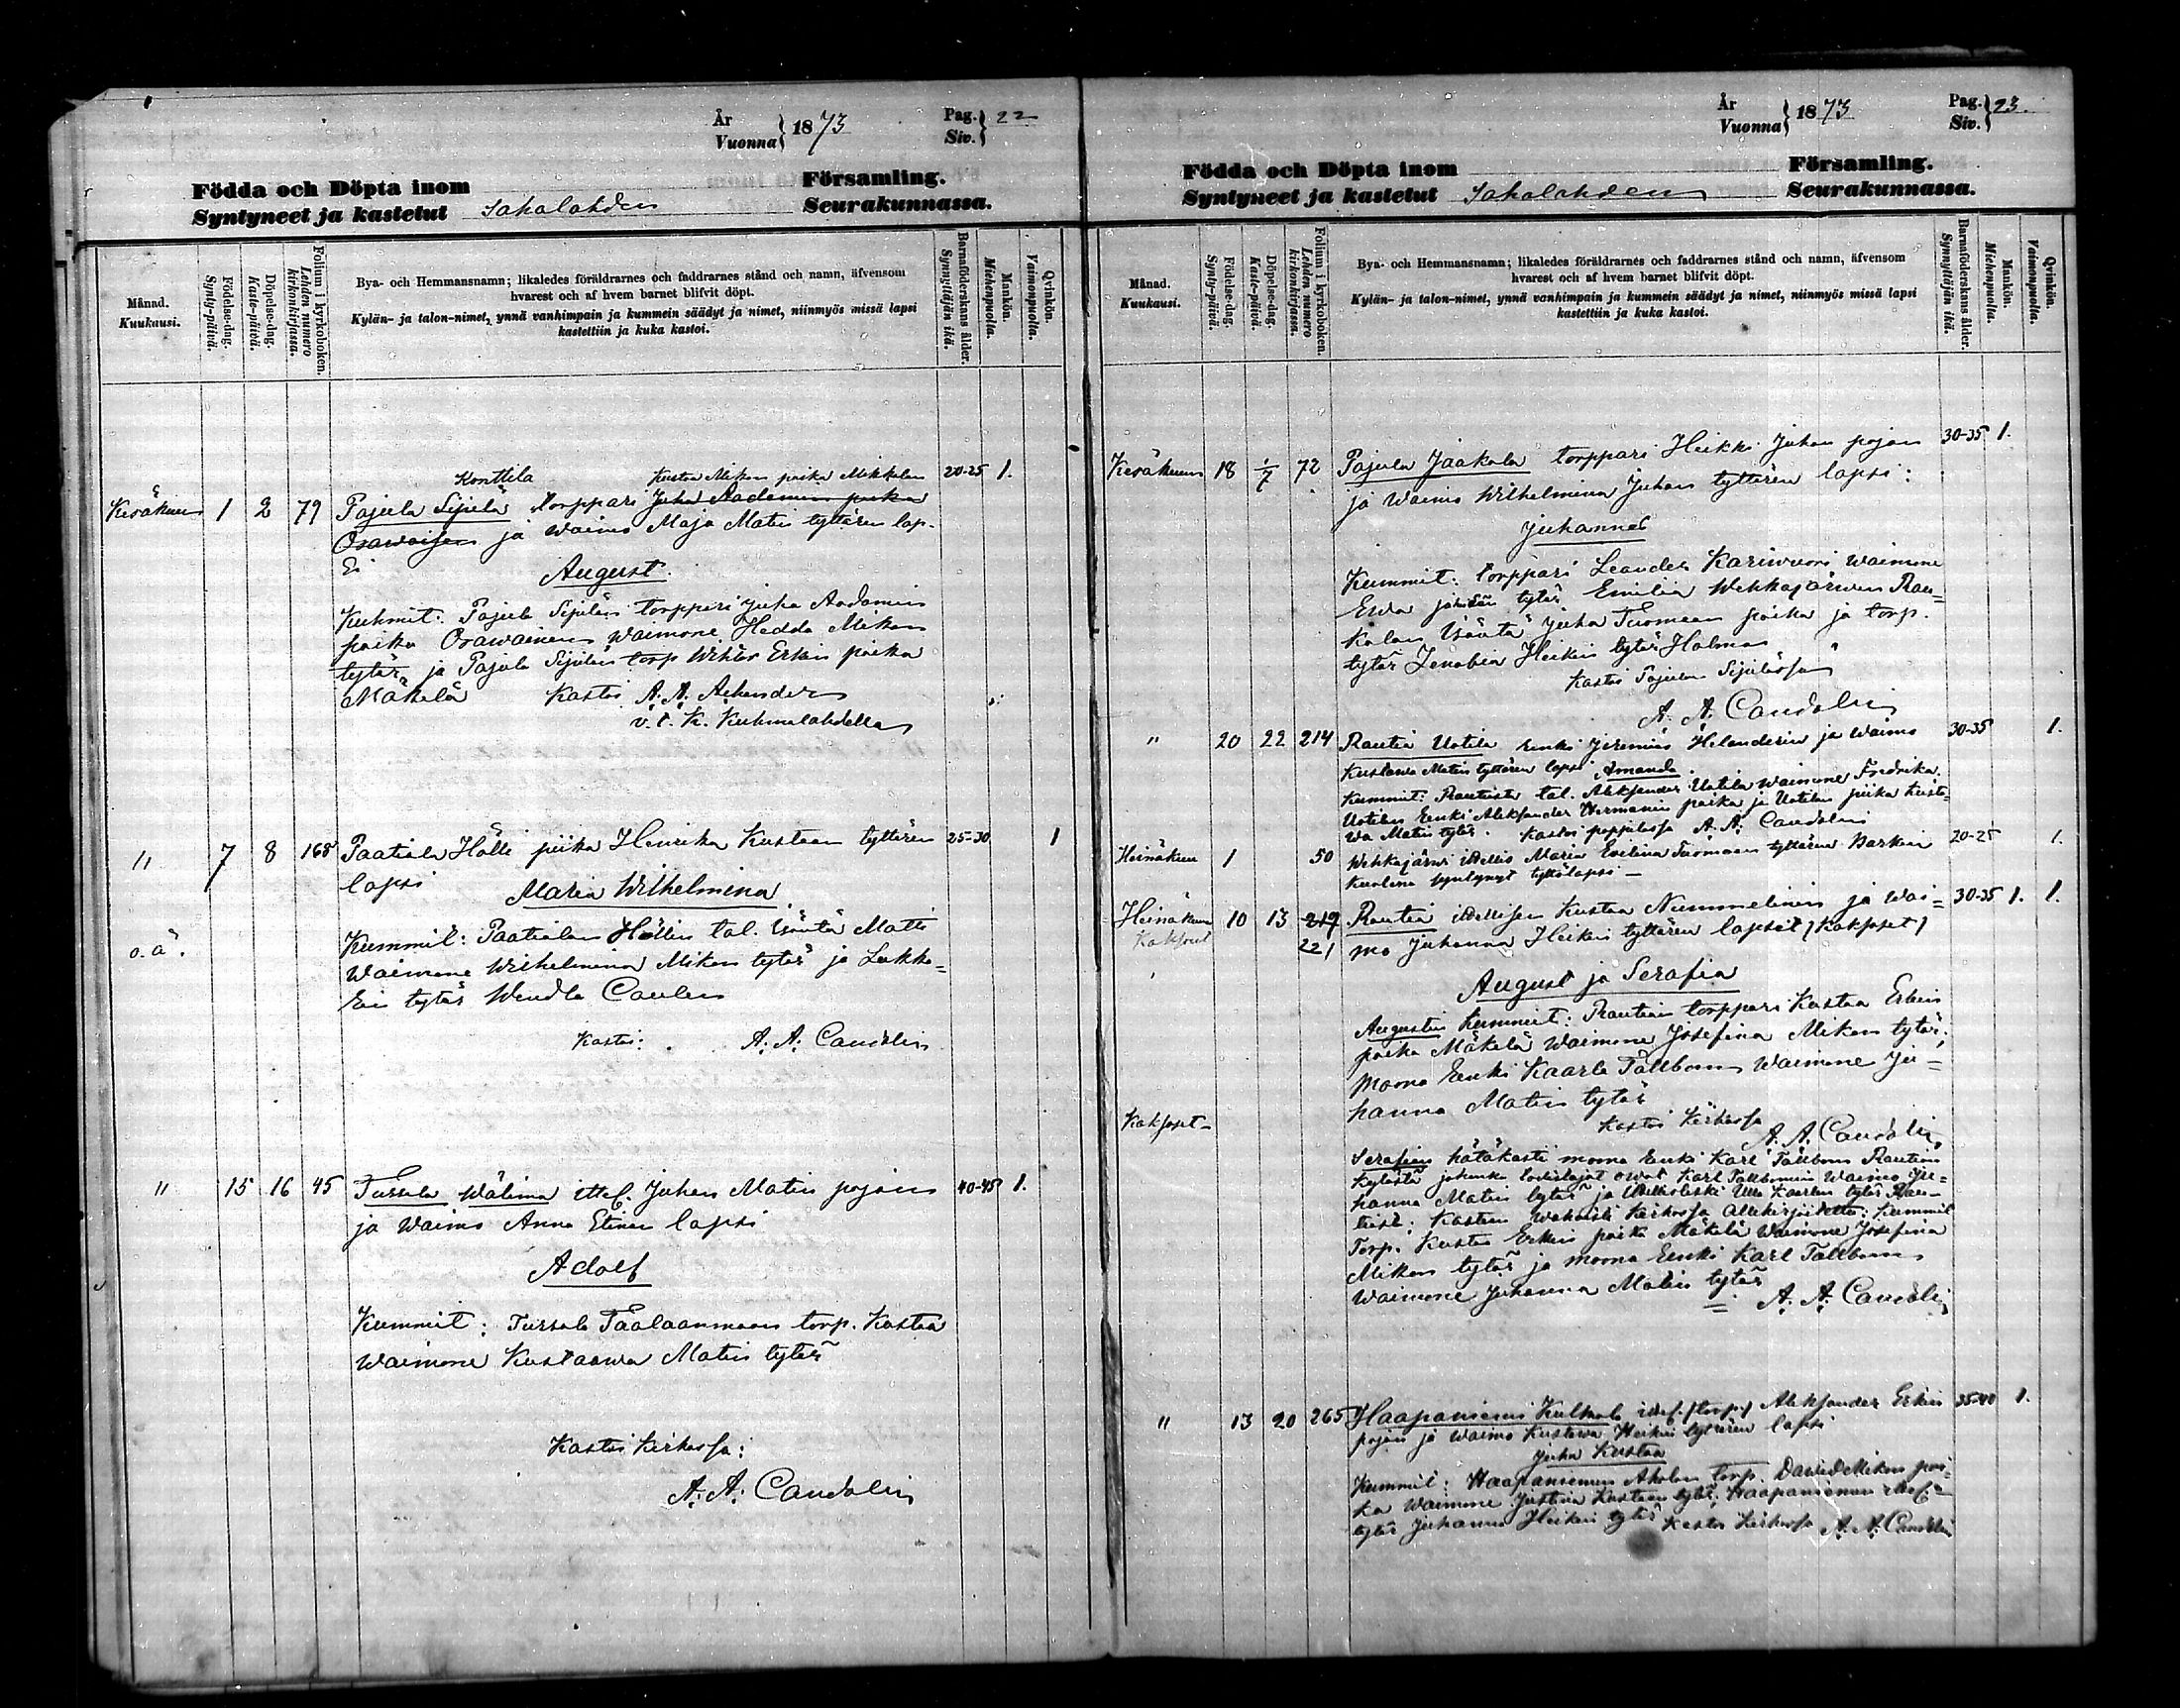 År
Vuonna } 1873
Pag.
Siv. } 22
Födda och Döpta inom Församling.
Syntyneet ja kastetut Sahalahden Seurakunnassa.
Månad.
Kuukausi.
Födelse-dag.
Synty-päivä.
Döpelse-dag.
Kaste-päivä.
Folium i kyrkoboken.
Lehden numero
kirkonkirjassa.
Bya- och Hemmansnamn; likaledes föräldrarnes och faddrarnes stånd och namn, äfvensom
hvarest och af hvem barnet blifvit döpt.
Kylän- ja talon-nimet, ynnä vanhimpain ja kummein säädyt ja nimet, niinmyös missä lapsi
kastettiin ja kuka kastoi.
Barnaföderskans ålder.
Synnyttäjän ikä.
Mankön.
Miehenpuolta.
Qvinkön.
Vaimonpuolta.
Konttila Kustaa Mikon poika Mikkolan 20-25 1.
Kesäkuun 1 2 79 Pajula Sipilä torppari Juha Aadamin poikan
Orawaisen ja waimo Maja Matin tyttären lap-
si
August.
Kuhmit: Pajula Sipilän torppari Juha Aadamin
poika Orawainen waimone Hedda Mikon
tytär, ja Pajula Sipilän torp Wihtor Erkin poika
Mäkelä Kastoi A. A.
v. t. K. Kuhmalahdella
" 7 8 168 Paatiala Hölli piika Henrika Kustaan tyttären 25-30 1
lapsi
Maria Wilhelmina
o. ä. Kummit: Paatialan Höllin tal. Isäntä Matti
waimone Wilhelmina Mikon tytär ja Lukka-
rin tytär Wendla
Kastoi: A. A. Candolin
" 15 16 45 Tursola Wälimaa itsel. Juhan Matin pojan 40-45 1.
ja waimo Anna Stina lapsi
Adolf
Kummit: Tursola Taalaanmaan torp. Kustaa
waimone Kustaawa Matin tytär
Kastoi kirkossa:
A. A. Candolin
År
Vuonna } 1873
Pag.
Siv. } 23.
Födda och Döpta inom Församling.
Syntyneet ja kastetut Sahalahden Seurakunnassa.
Månad.
Kuukausi.
Födelse-dag.
Synty-päivä.
Döpelse-dag.
Kaste-päivä.
Folium i kyrkoboken.
Lehden numero
kirkonkirjassa.
Bya- och Hemmansnamn; likaledes föräldrarnes och faddrarnes stånd och namn, äfvensom
hvarest och af hvem barnet blifvit döpt.
Kylän- ja talon-nimet, ynnä vanhimpain ja kummein säädyt ja nimet, niinmyös missä lapsi
kastettiin ja kuka kastoi.
Barnaföderskans ålder.
Synnyttäjän ikä.
Mankön.
Miehenpuolta.
Qvinkön.
Vaimonpuolta.
Kesäkuun 18 1/7 72 Pajula Jaakola torppari Heikki Juhan pojan 30-35 1.
ja waimo Wilhelmina Juhan tyttären lapsi:
Juhannes
Kummit: torppari Leander Kariwuori waimone
Ewa tytär Emilia Wehkajärwen Rau-
kolan Isäntä Juha Tuomaan poika ja torp.
tytär Zenobia Heikin tytär Holma
Kastoi Pajulan Sipilässä
A. A. Candolin
" 20 22 214 Rautia Uotila Renki Jeremias Helanderin ja waimo 30-35 1.
Kustawa Matin tyttären lapsi Amanda.
Kummit: Rautista tal. Aleksander Uotila waimone Fredrika.
Uotilan Renki Aleksander Hermanin poika ja Uotilan piika Kusta-
wa Matin tytär. Kastoi pappilassa A. A. Candolin
Heinäkuu 1 50 Wehkajärwi itsellis Maria Evelina Tuomaan tyttären 20-25 1.
Kuolena syntynyt tyttölapsi –
Heinäkuu 10 13 219 Rautia itsellisen Kustaa Nummelinin ja wai- 30-35 1. 1.
Kaksoset 221 mo Juhanna Heikin tyttären lapset / Kaksoset /
August ja Serafia
Augustin Kummit: Rautian torppari Kustaa Erkin
poika Mäkelä waimone Josefina Mikon tytär;
moona Renki Kaarle Tallbom waimone Ju-
hanna Matin tytär
Kaksoset – Kastoi Kirkossa
A. A. Candolin
Serafian hätäkasti moona Renki Karl Tallbom Rautian
Kylästä johonka todistajat owat Karl Tallbomin waimo Ju-
hanna Matin tytär ja Ulla Kaarlen tytär Rau-
tiast. Kasteen wahwisti kirkossa Allekirjoitettu: Kummit
Torp. Kustaa Erkin poika Mäkelä waimone Josefina
Mikon tytär ja moona Renki Karl Tallbom
waimone Juhanna Matin tytär
= A. A. Candolin
" 13 20 265 Haapaniemi Kulmala itsel. /torp./ Aleksander Erkin 35-40 1.
pojan ja waimo Kustawa Heikin tyttären lapsi
Juha Kustaa
Kummit: Haapaniemen Aholan torp. David Mikon poi-
ka waimone Justina Kustaan tytär, Haapaniemen itsel-
tytär Juhanna Heikin tytär Kastoi kirkossa A. A. Candolin